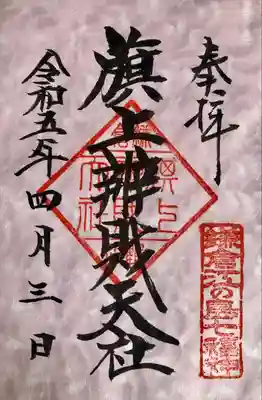 奉拝
旗上辨財天社
令和五年四月三日
鎌倉江の島七福神